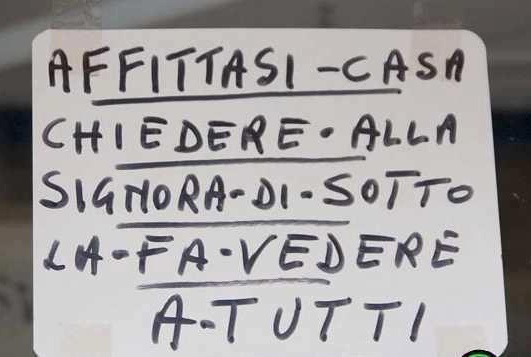 AFFITTASI-CASA
CHIEDERE·ALLA
SIGNORA-DI-SOTTO
LA-FA-VEDERE
A-TUTTI